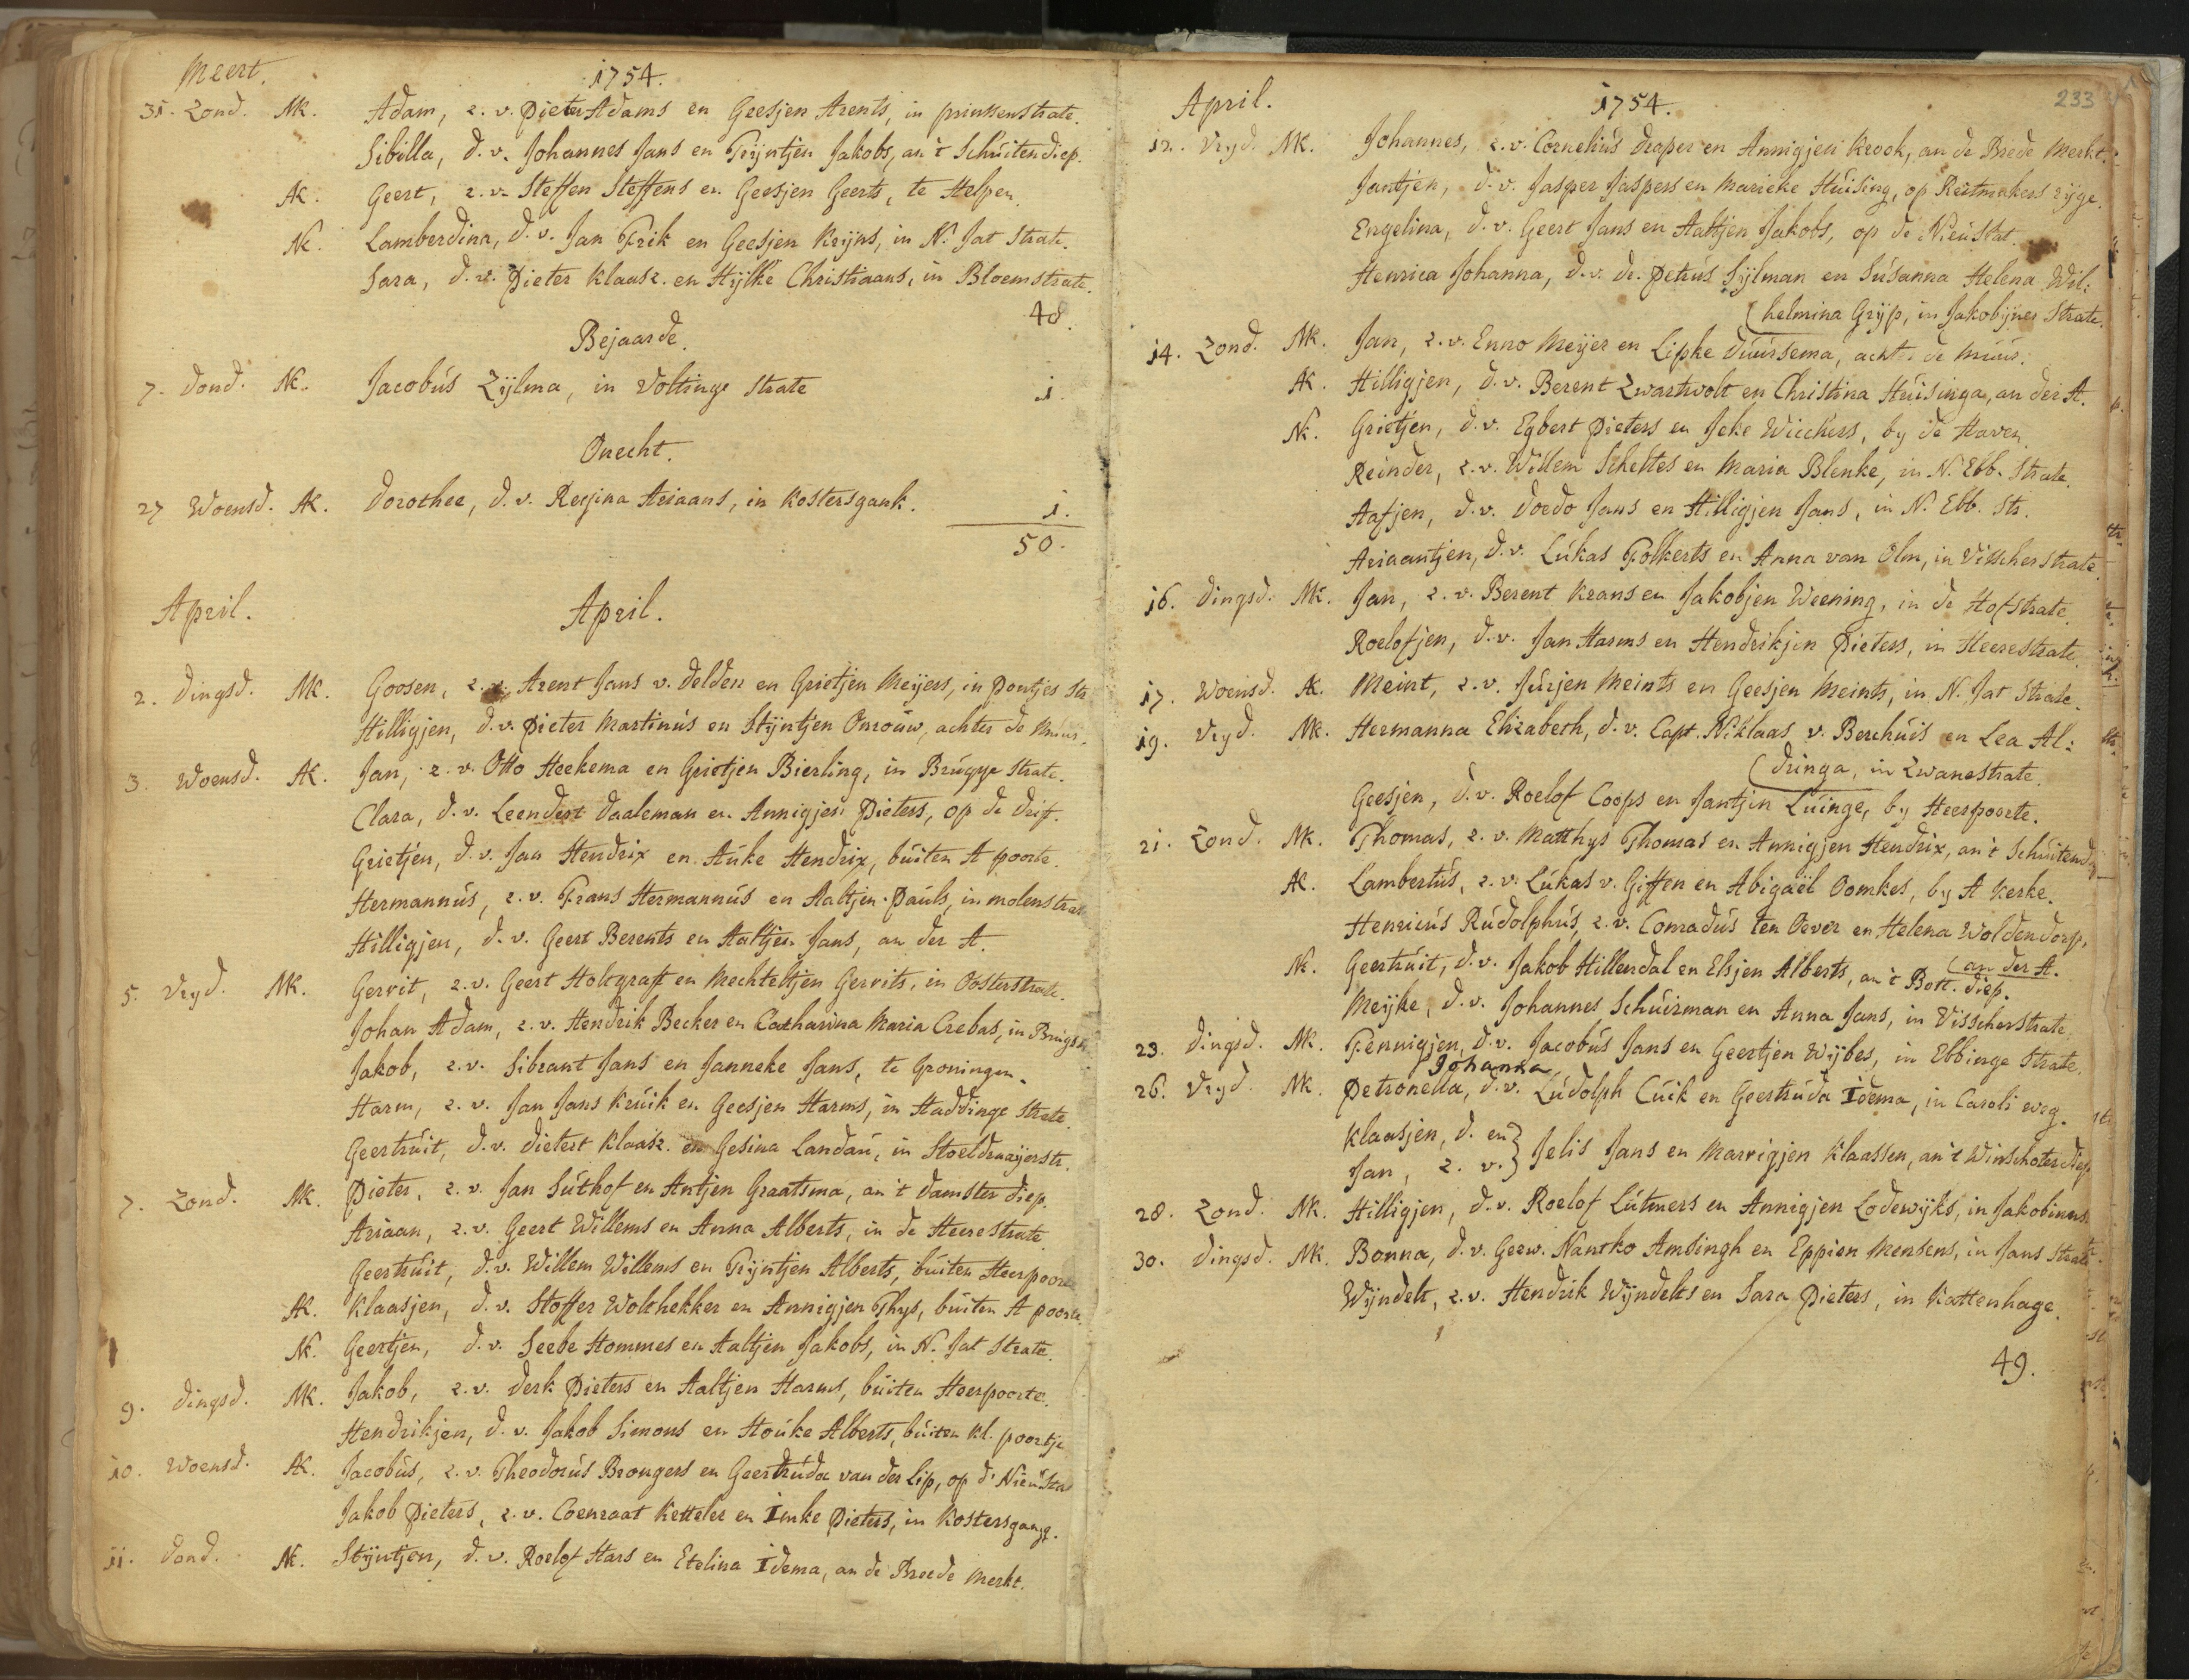 Meert. 1754.
31. Zond. MK. Adam, z. v. Pieter Adams en Geesjen Arents, in prinssenstrate.
Sibilla, d. v. Johannes Jans en Trijntjen Jakobs, an 't Schuitendiep.
AK. Geert, z. v. Steffen Steffens en Geesjen Geerts, te Helpen.
NK. Lamberdina, d. v. Jan Frik en Geesjen Krijns, in N. Jat Strate.
Sara, d. v. Pieter Klaasz. en Hijlke Christiaans, in Bloemstrate.
48.
Bejaarde.
7. Dond. NK. Jacobus Zijlma, in Voltinge Strate 1.
Onecht.
27 Woensd. AK. Dorothee, d. v. Regina Ariaans, in Kostersgank. 1.
50.
April. April.
2. Dingsd. MK. Goosen, z. v. Arent Jans v. Delden en Grietjen Meijers, in Pontjes Str
Hilligjen, d. v. Pieter Martinus en Stijntjen Onrouw, achter de Muur.
3. Woensd. AK. Jan, z. v. Otto Heekema en Grietjen Bierling, in Brugge Strate.
Clara, d. v. Leendert Daaleman en Annigjen Pieters, op de Drift.
Grietjen, d. v. Jan Hendrix en Auke Hendrix, buiten A poorte.
Hermannus, z. v. Frans Hermannus en Aaltjen Pauls, in molenstrate
Hilligjen, d. v. Geert Berents en Aaltjen Jans, an der A.
5. Vryd. MK. Gerrit, z. v. Geert Holtgraft en Mechteltjen Gerrits, in Oosterstrate.
Johan Adam, z. v. Hendrik Becker en Catharina Maria Crebas, in Brugstr
Jakob, z. v. Sibrant Jans en Janneke Jans, te Groningen.
Harm, z. v. Jan Jans Kruik en Geesjen Harms, in Haddinge Strate.
Geertruit, d. v. Dietert Klaasz. en Gesina Landau, in Stoeldraaijerstr.
7. Zond. MK. Pieter, z. v. Jan Suthof en Antjen Graatsma, an 't Damster diep.
Ariaan, z. v. Geert Willems en Anna Alberts, in de Heerestrate.
Geertruit, d. v. Willem Willems en Trijntjen Alberts, buiten Heerpoorte
AK. Klaasjen, d. v. Stoffer Wolthekker en Annigjen Thys, buiten A poorte.
NK. Geertjen, d. v. Seebe Hommes en Aaltjen Jakobs, in N. Jat Strate.
9. Dingsd. MK. Jakob, z. v. Derk Pieters en Aaltjen Harms, buiten Heerpoorte.
Hendrikjen, d. v. Jakob Simons en Houke Alberts, buiten Kl. poortje
10. Woensd. AK. Jacobus, z. v. Theodorus Brongers en Geertruda van der Lip, op d' Nieustat
Jakob Pieters, z. v. Coenraat Ketteler en Imke Pieters, in Kostersgang.
11. Dond. NK. Stijntjen, d. v. Roelof Hars en Etelina Idema, an de Breede Merkt.
April. 1754. 233
12. Vryd. MK. Johannes, z. v. Cornelius Draper en Annigjen Krook, an de Brede Merkt.
Jantjen, d. v. Jasper Jaspers en Marieke Huising, op Reitmakers rijge.
Engelina, d. v. Geert Jans en Aaltjen Jakobs, op de Nieustat.
Henrica Johanna, d. v. Dr. Petrus Sijlman en Susanna Helena Wil:
(helmina Grijp, in Jakobijner Strate.
14. Zond. MK. Jan, z. v. Enno Meijer en Lipke Duursema, achter de Muur.
AK. Hilligjen, d. v. Berent Zwartwolt en Christina Huisinga, an der A.
NK. Grietjen, d. v. Egbert Pieters en Jeke Wicchers, by de Haven.
Reinder, z. v. Willem Scheltes en Maria Blenke, in N. Ebb. Strate.
Aafjen, d. v. Doedo Jans en Hilligjen Jans, in N. Ebb. Str.
Ariaantjen, d. v. Lukas Folkerts en Anna van Olm, in Visscherstrate.
16. Dingsd. MK. Jan, z. v. Berent Krans en Jakobjen Weening, in de Hofstrate.
Roelofjen, d. v. Jan Harms en Hendrikjen Pieters, in Heerestrate.
17. Woensd. AK. Meint, z. v. Jurjen Meints en Geesjen Meints, in N. Jat Strate.
19. Vryd. MK. Hermanna Elizabeth, d. v. Capt. Niklaas v. Berchuis en Lea Al:
(dringa, in Zwanestrate.
Geesjen, d. v. Roelof Coops en Jantjen Luinge, by Heerpoorte.
21. Zond. MK. Thomas, z. v. Matthys Thomas en Annigjen Hendrix, an 't Schuitend
AK. Lambertus, z. v. Lukas v. Giffen en Abigaël Oomkes, by A Kerke.
Henricus Rudolphus, z. v. Conradus ten Oever en Helena Woldendorp,
(an der A.
NK. Geertruit, d. v. Jakob Hillendal en Elsjen Alberts, an 't Bott. diep.
Meijke, d. v. Johannes Schuirman en Anna Jans, in Visscherstrate
23. Dingsd. MK. Fennigjen, d. v. Jacobus Jans en Geertjen Wijbes, in Ebbinge Strate.
Johanna
26. Vryd MK. Petronella, d. v. Ludolph Cuik en Geertruda Idema, in Caroli weg.
Klaasjen, d. en}
Jan, z. v.} Jelis Jans en Marrigjen Klaassen, an 't Winschoter diep
28. Zond. MK. Hilligjen, d. v. Roelof Lutmers en Annigjen Lodewijks, in Jakobinerstr
30. Dingsd. MK. Bonna, d. v. Geew. Nantko Amsingh en Eppien Mensens, in Jans Strate.
Wijndelt, z. v. Hendrik Wijndelts en Sara Pieters, in Kattenhage.
49.